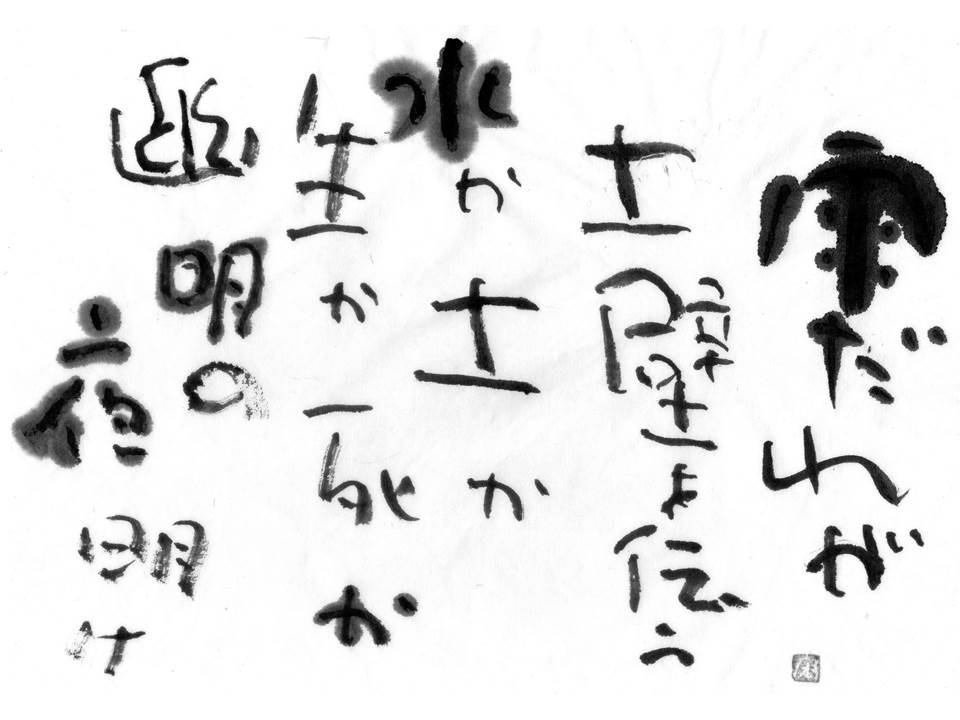 雨だれが
土壁を伝う
水か土か
生か死か
幽明の
夜明け